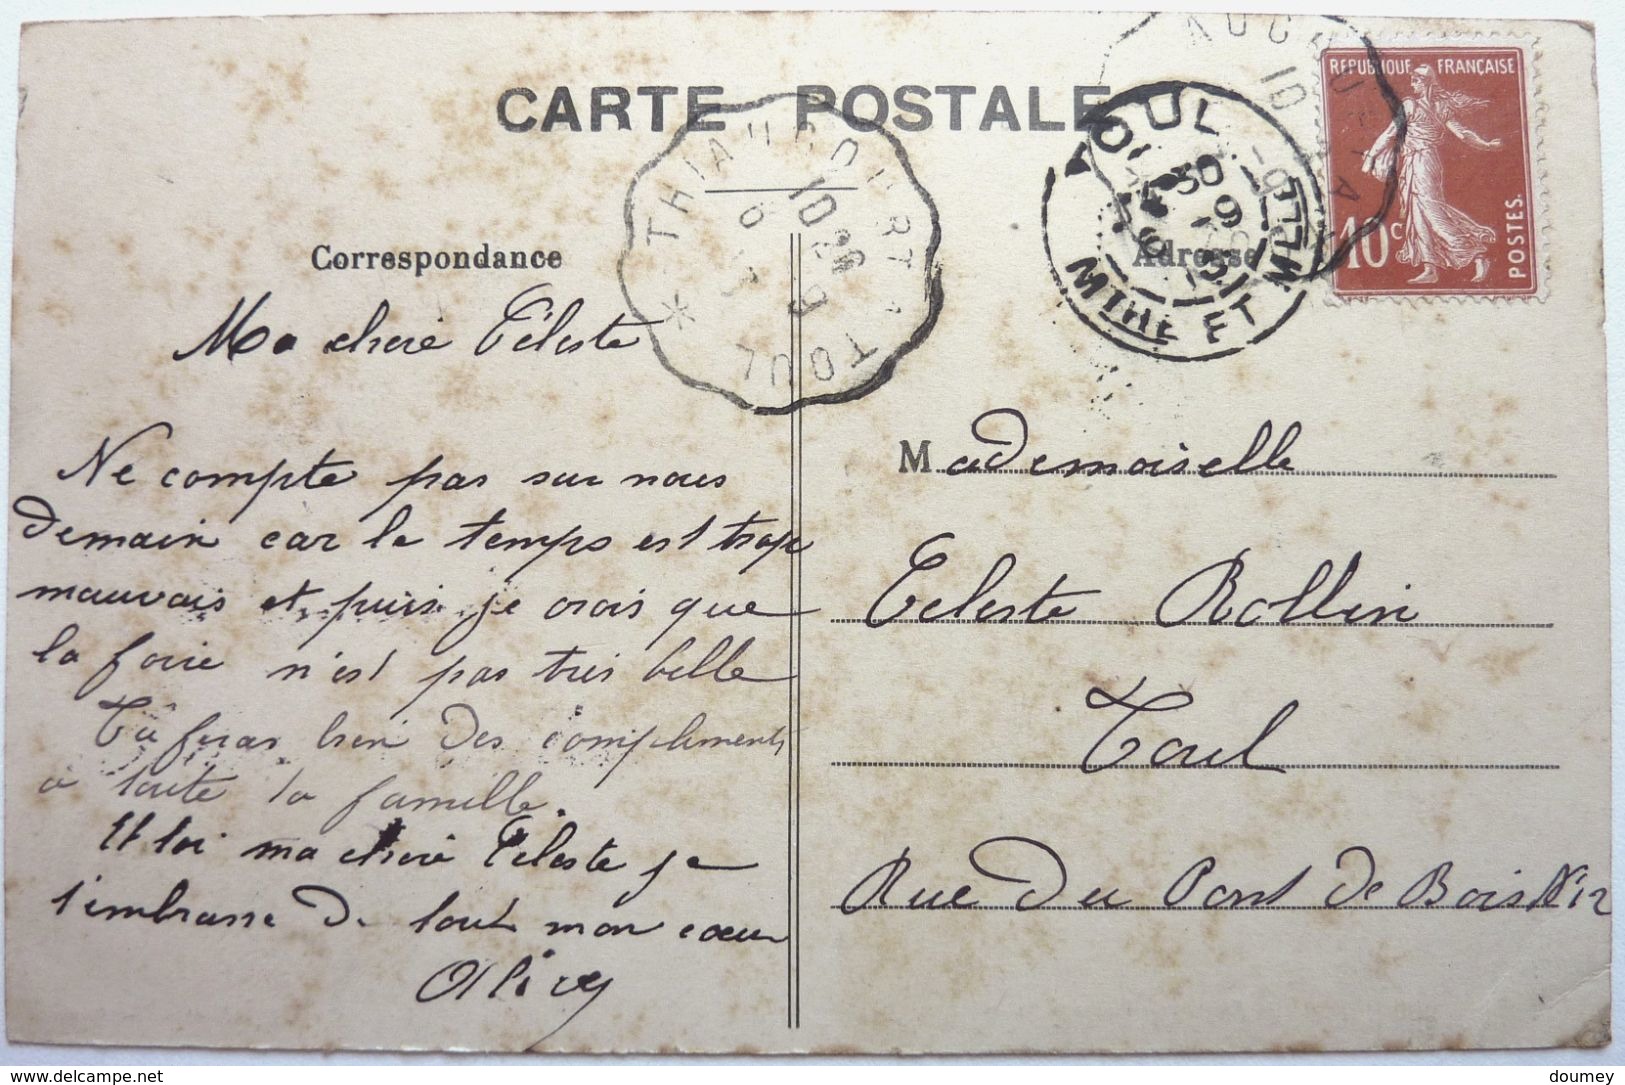 CARTE POSTALE
Correspondance
Adresse
REPUBLIQUE FRANÇAISE
10c
POSTES
THIAUCOURT A TOUL
TOUL
MTHE ET MLLE
Ma chere Céleste
Ne compte pas sur nous
demain car le temps est trop
mauvais et puis je crois que
la foire n'est pas très belle
Tu feras bien des compliments
a toute la famille.
Et toi ma chere Céleste je
t'embrasse de tout mon coeur
Mademoiselle
Celeste Rollin
Toul
Rue du Pont de Bois N12
doumey